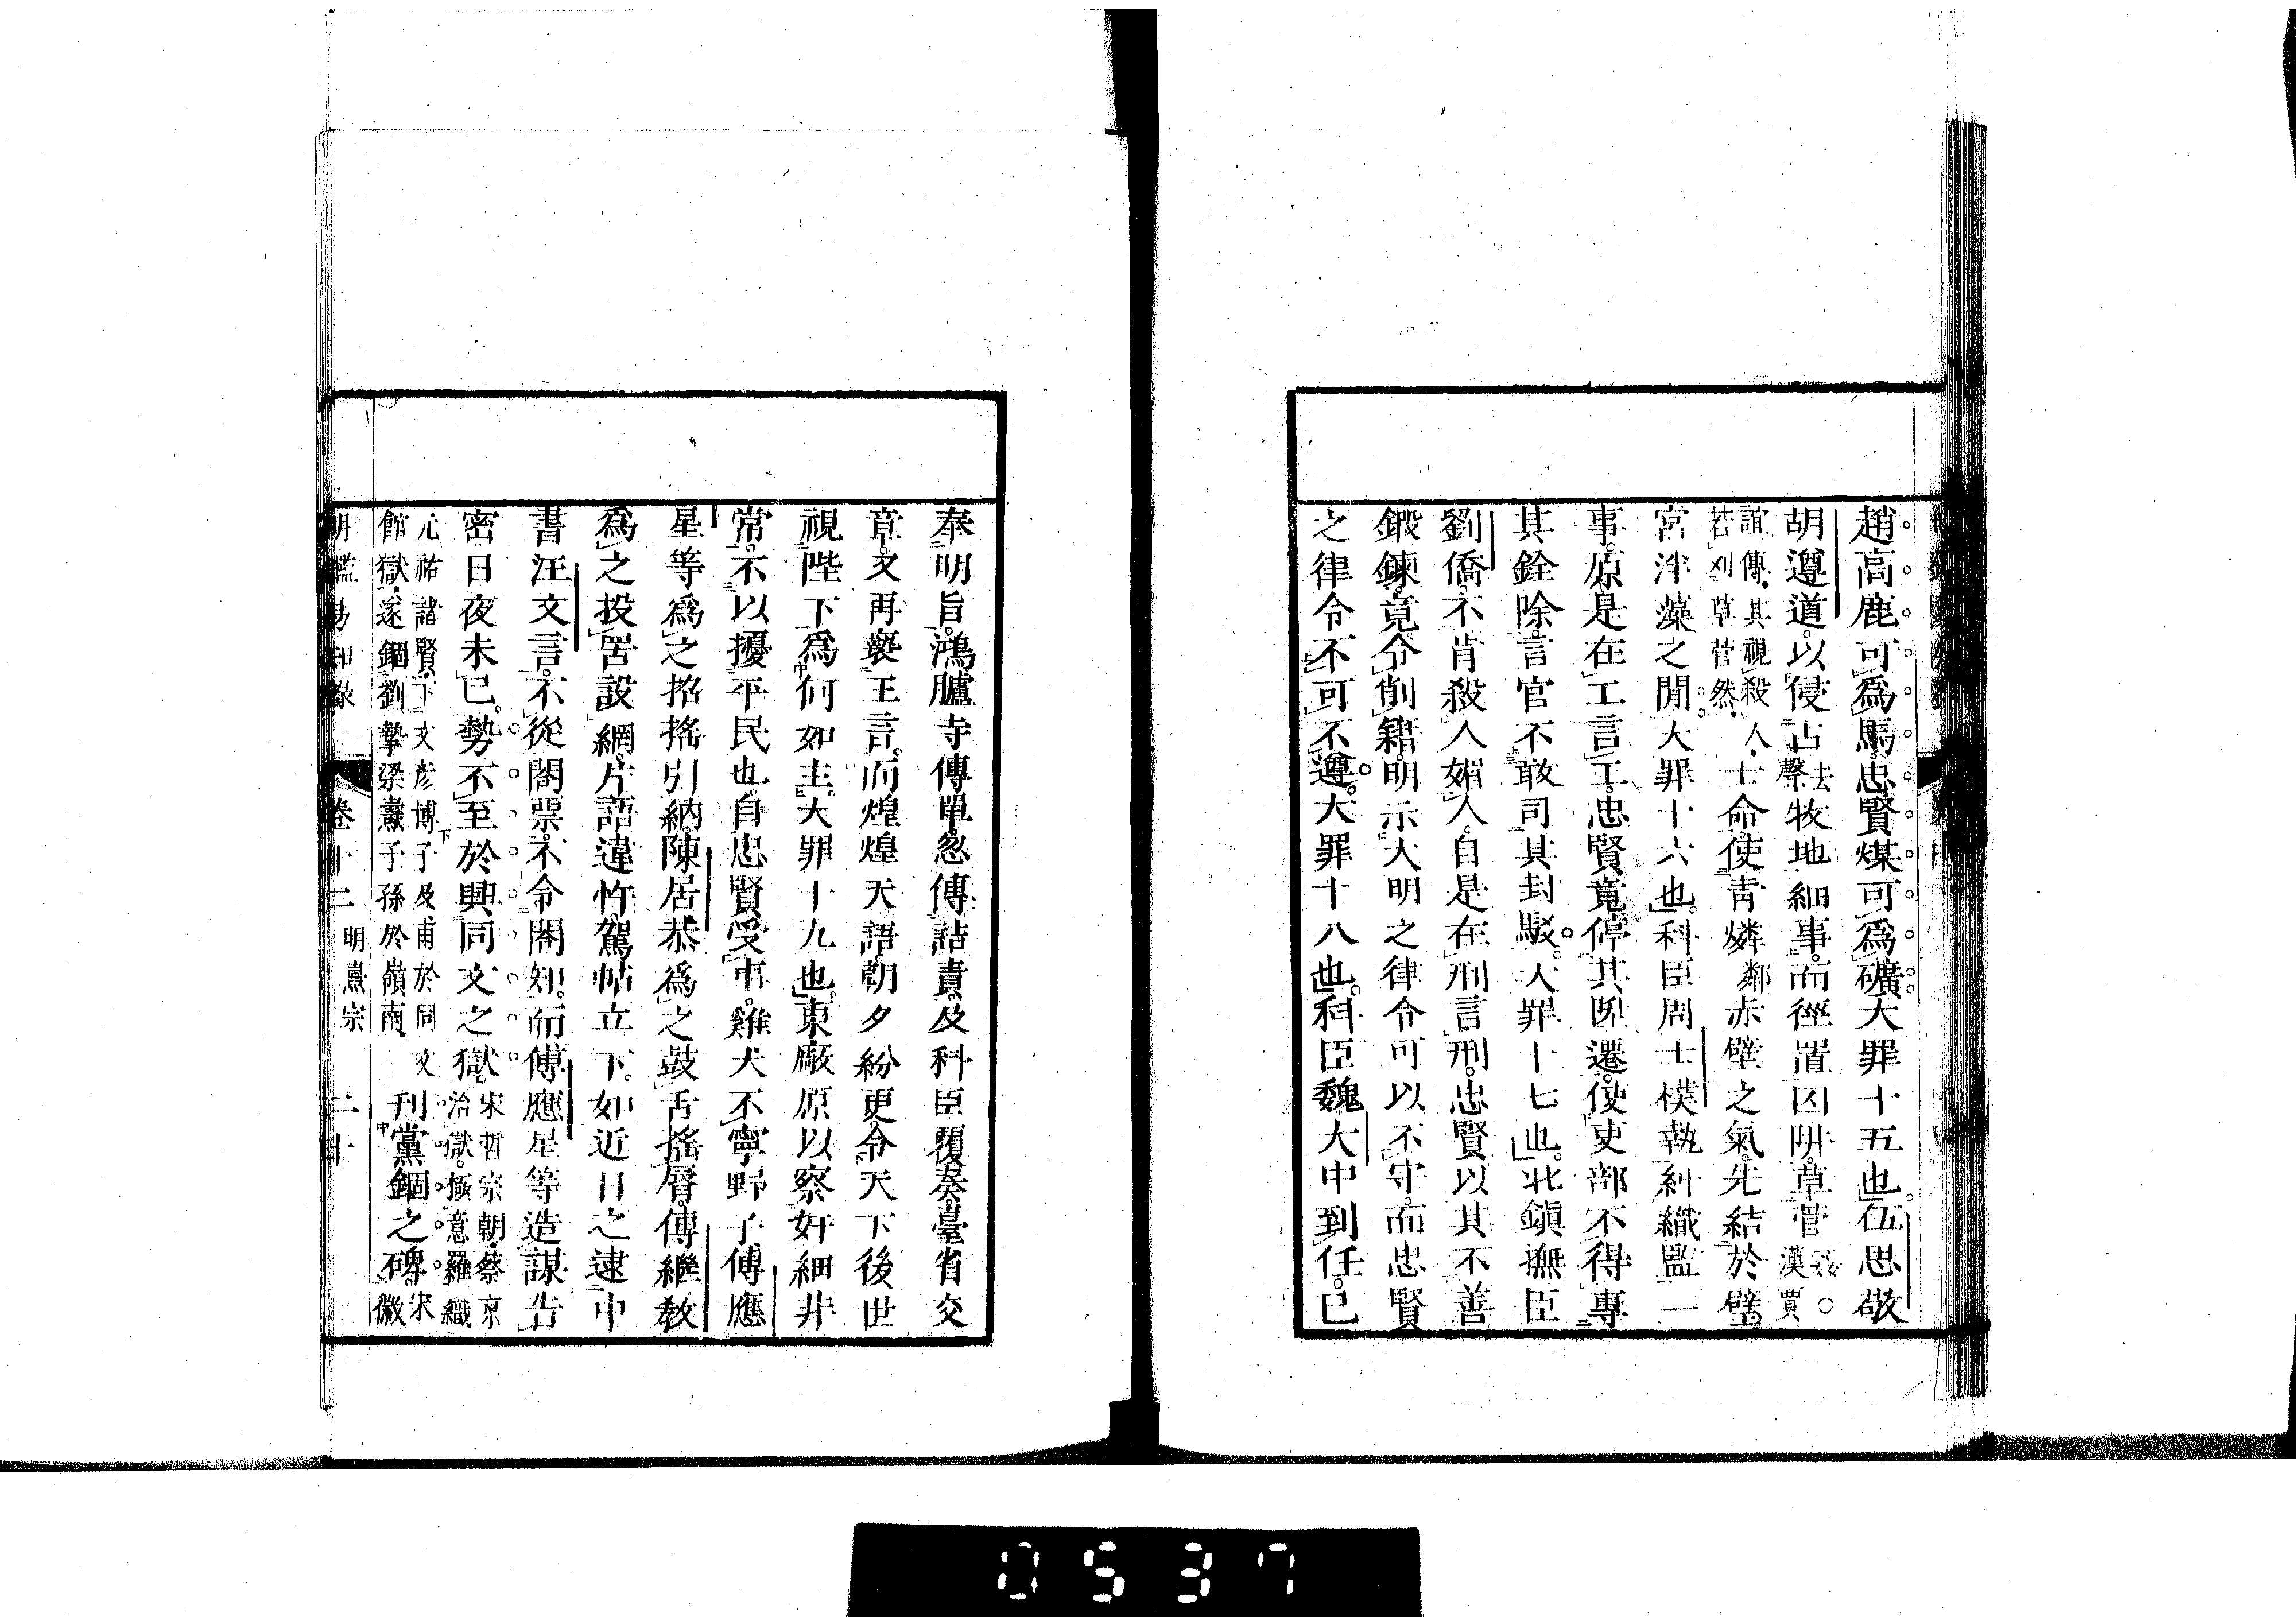 趙高鹿可爲馬。忠賢煤可爲礦。大罪十五也。伍思敬
胡遵道。以侵占去聲牧地細事。而徑置囚阱。草菅漢賈
誼傳。其視殺人。若刈草菅然。士命。使青燐鄰赤壁之氣。先結於璧
宮泮藻之閒。大罪十六也。科臣周士樸執糾織監一
事。原是在工言工。忠賢竟停其陞遷。使吏部不得專
其銓除。言官不敢司其封駁。大罪十七也。北鎭撫臣
劉僑。不肯殺人媚人。自是在刑言刑。忠賢以其不善
鍛鍊。竟令削籍。明示大明之律令可以不守。而忠賢
之律令不可不遵。大罪十八也。科臣魏大中到任。已
奉明旨。鴻臚寺傳單。忽傳詰責。及科臣覆奏。臺省交
章。又再褻王言。而煌煌天語。朝夕紛更。令天下後世
視陛下爲何如主。大罪十九也。東廠原以察奸細非
常。不以擾平民也。自忠賢受事。雞犬不寧。野子傅應
星等爲之招搖引納。陳居恭爲之鼓舌搖脣。傅繼敎
爲之投罟設網。片語違忤。駕帖立下。如近日之逮中
書汪文言。不從閣票。不令閣知。而傅應星等造謀告
密。日夜未已。勢不至於興同文之獄。宋哲宗朝。蔡京治獄。極意羅織
元祐諸賢。下文彥博子及甫於同文館獄。遂錮劉摯梁燾子孫於嶺南。刊黨錮之碑。宋徽
卷十二 明熹宗 二十
0537